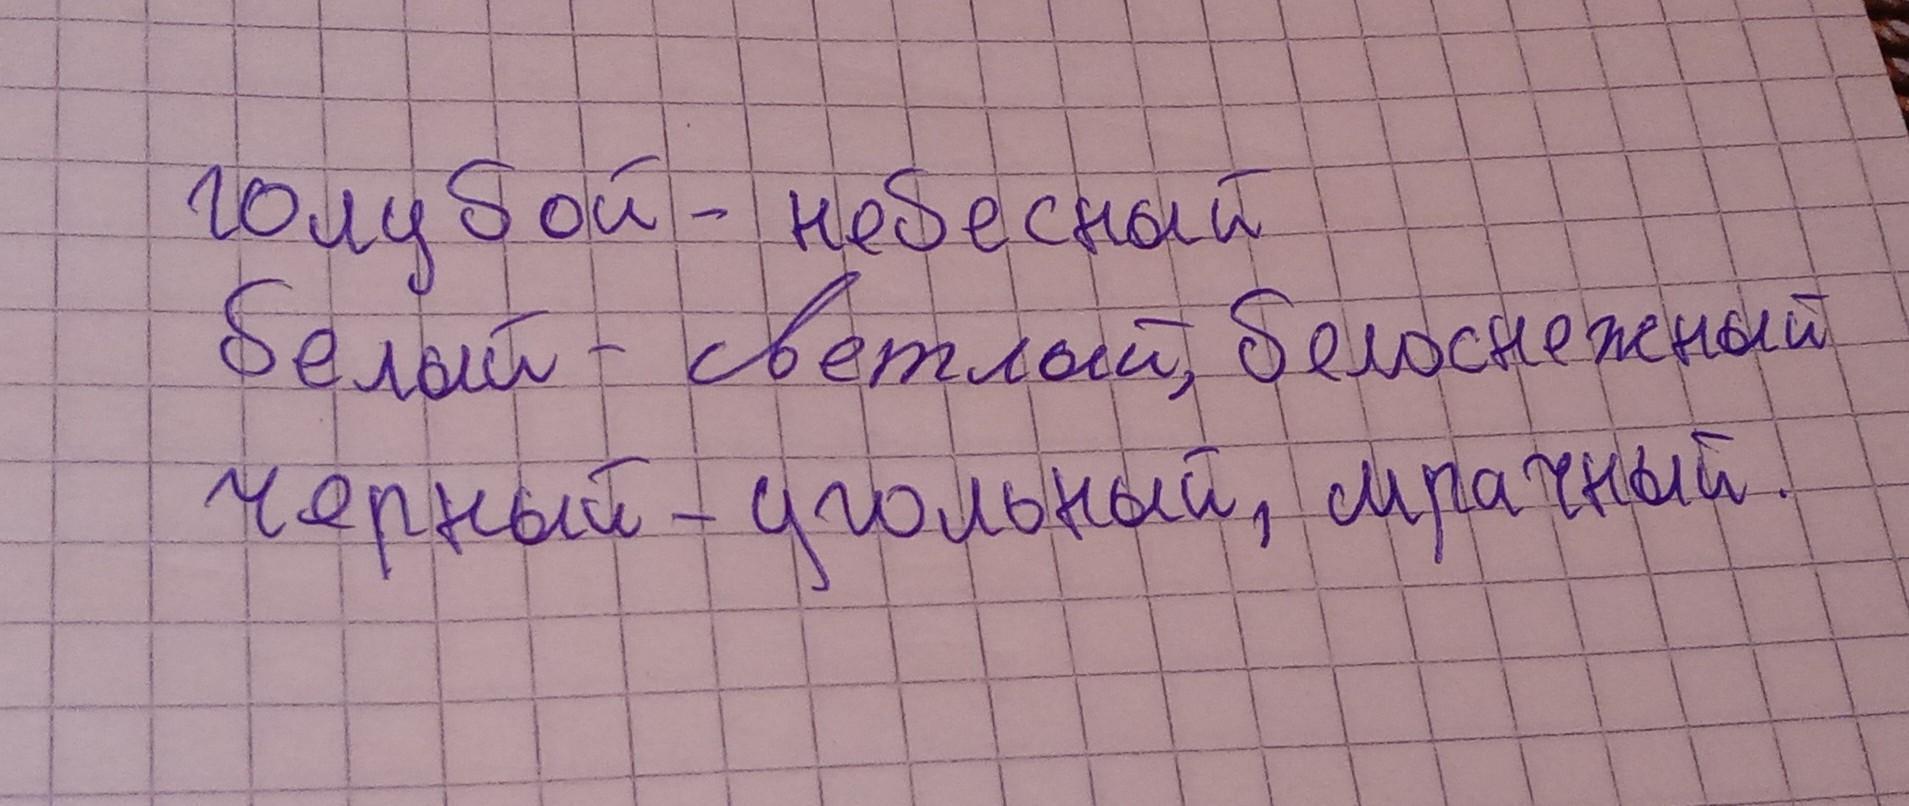 голубой - небесный
белый - светлый, белоснежный
черный - угольный, мрачный.